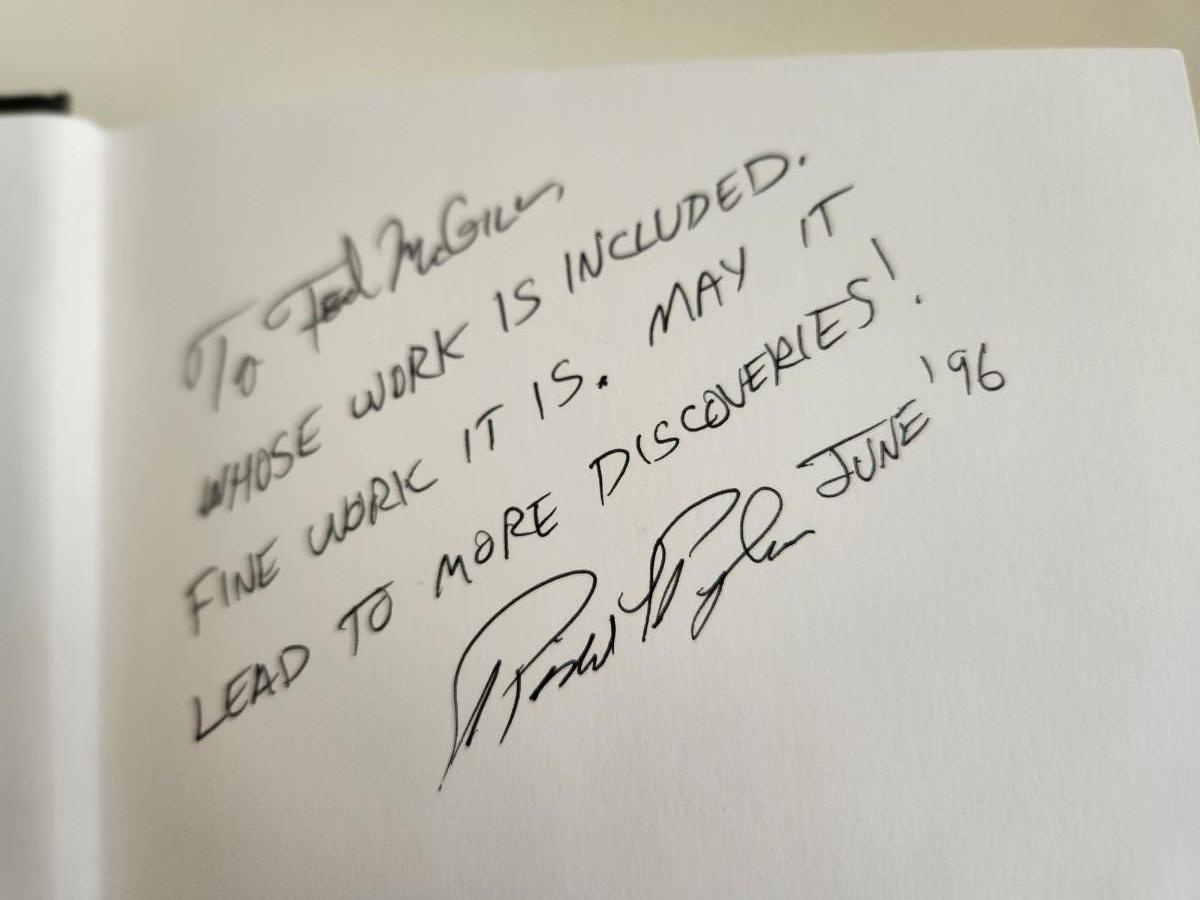 To Ted
WHOSE WORK IS INCLUDED.
FINE WORK IT IS. MAY IT
LEAD TO MORE DISCOVERIES!
JUNE '96